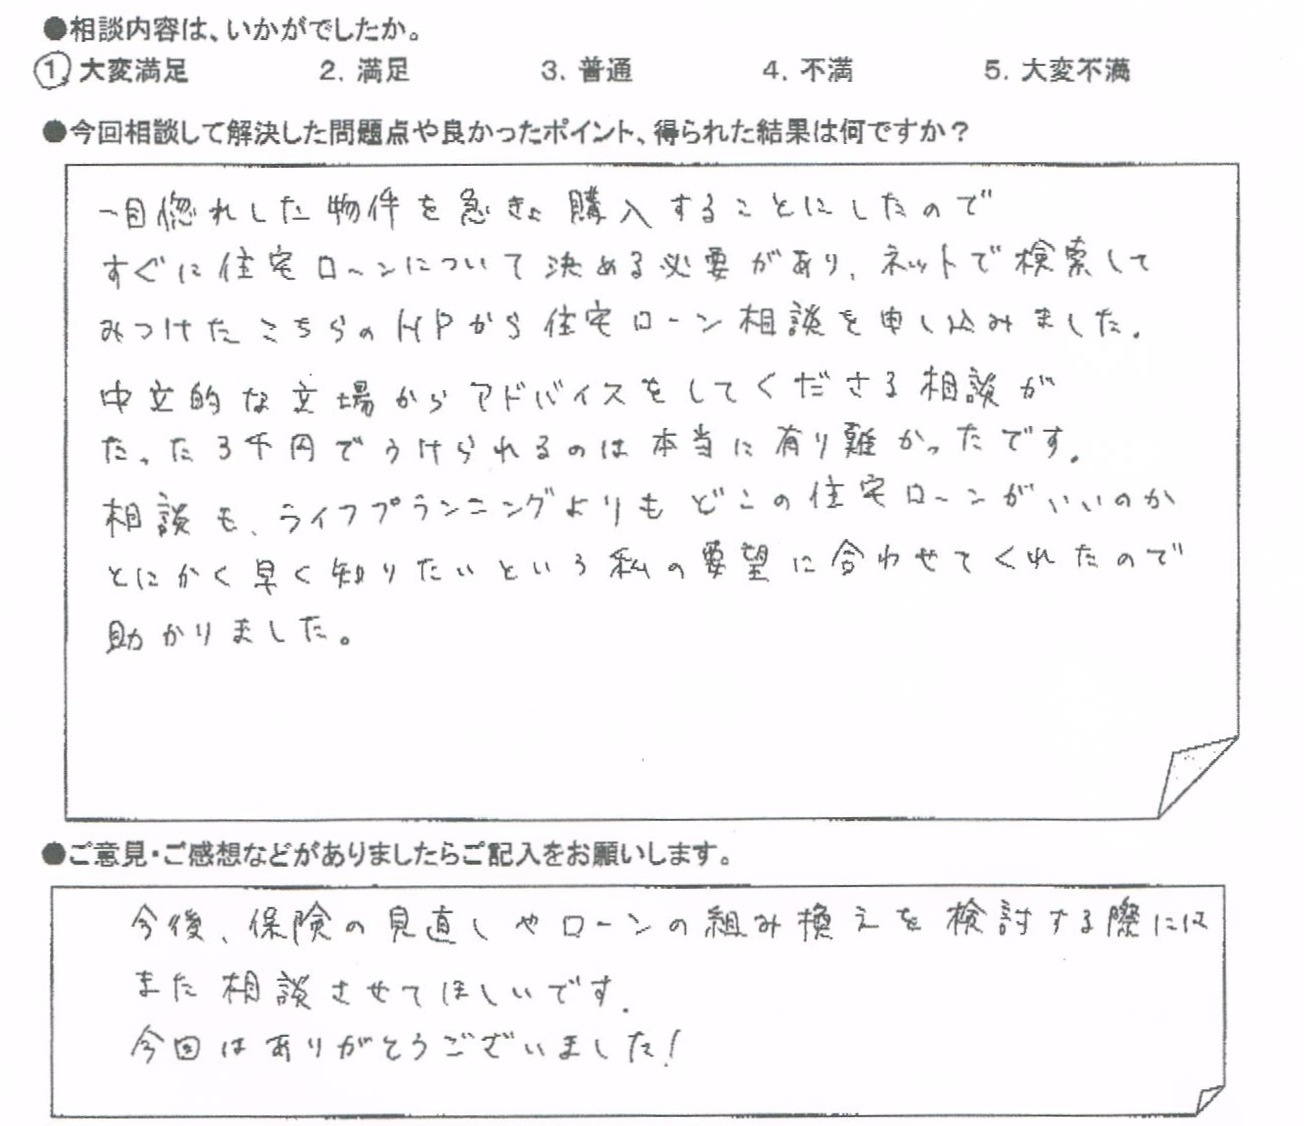 ●相談内容は、いかがでしたか。
1. 大変満足 2. 満足 3. 普通 4. 不満 5. 大変不満
●今回相談して解決した問題点や良かったポイント、得られた結果は何ですか？
一目惚れした物件を急きょ購入することにしたので
すぐに住宅ローンについて決める必要があり、ネットで検索して
みつけたこちらのHPから住宅ローン相談を申し込みました。
中立的な立場からアドバイスをしてくださる相談が
たった3千円でうけられるのは本当に有り難かったです。
相談も、ライフプランニングよりもどこの住宅ローンがいいのか
とにかく早く知りたいという私の要望に合わせてくれたので
助かりました。
●ご意見・ご感想などがありましたらご記入をお願いします。
今後、保険の見直しやローンの組み換えを検討する際には
また相談させてほしいです。
今回はありがとうございました!